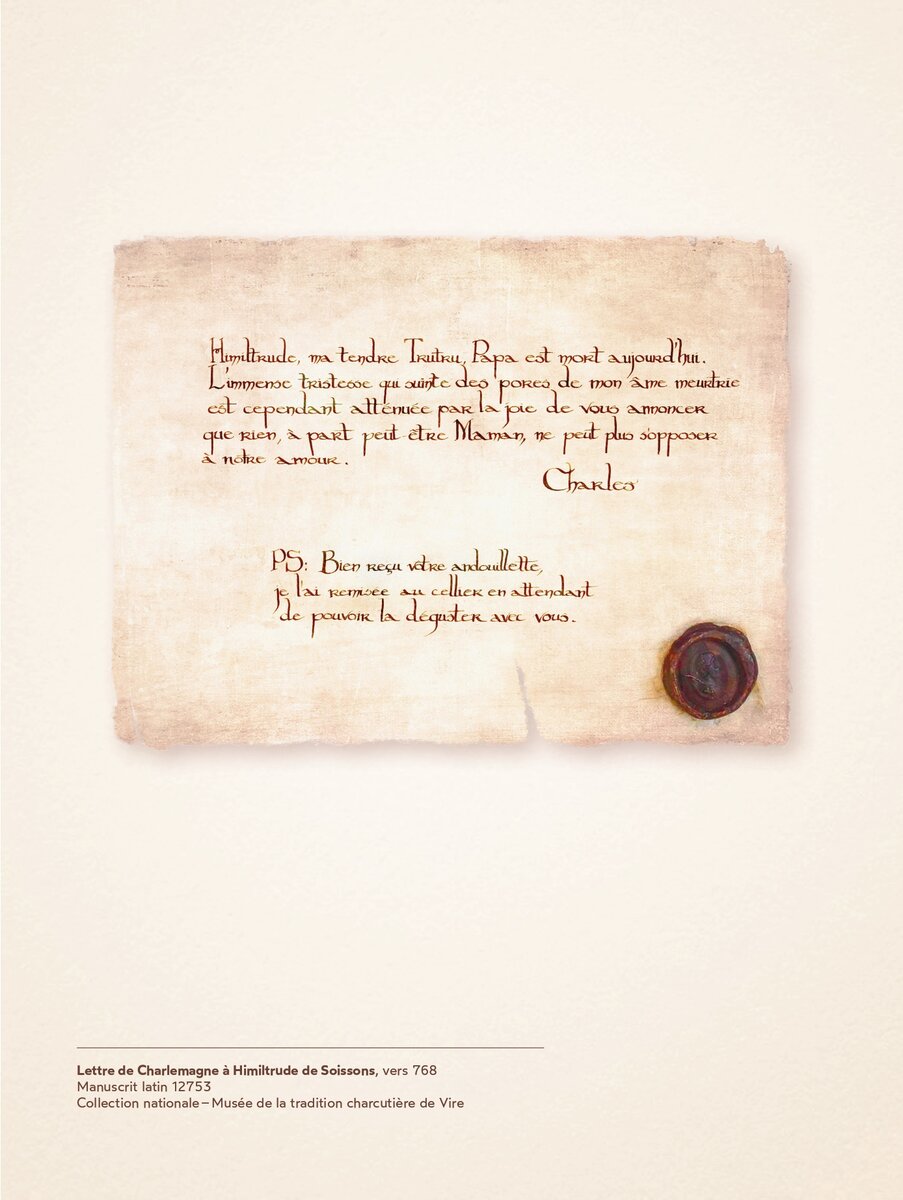 Himiltrude, ma tendre Trutru, Papa est mort aujourd'hui.
L'immense tristesse qui suinte des pores de mon âme meurtrie
est cependant atténuée par la joie de vous annoncer
que rien, à part peut-être Maman, ne peut plus s'opposer
à nôtre amour.
Charles
PS: Bien reçu vôtre andouillette,
je l'ai remisée au cellier en attendant
de pouvoir la déguster avec vous.
Lettre de Charlemagne à Himiltrude de Soissons, vers 768
Manuscrit latin 12753
Collection nationale – Musée de la tradition charcutière de Vire